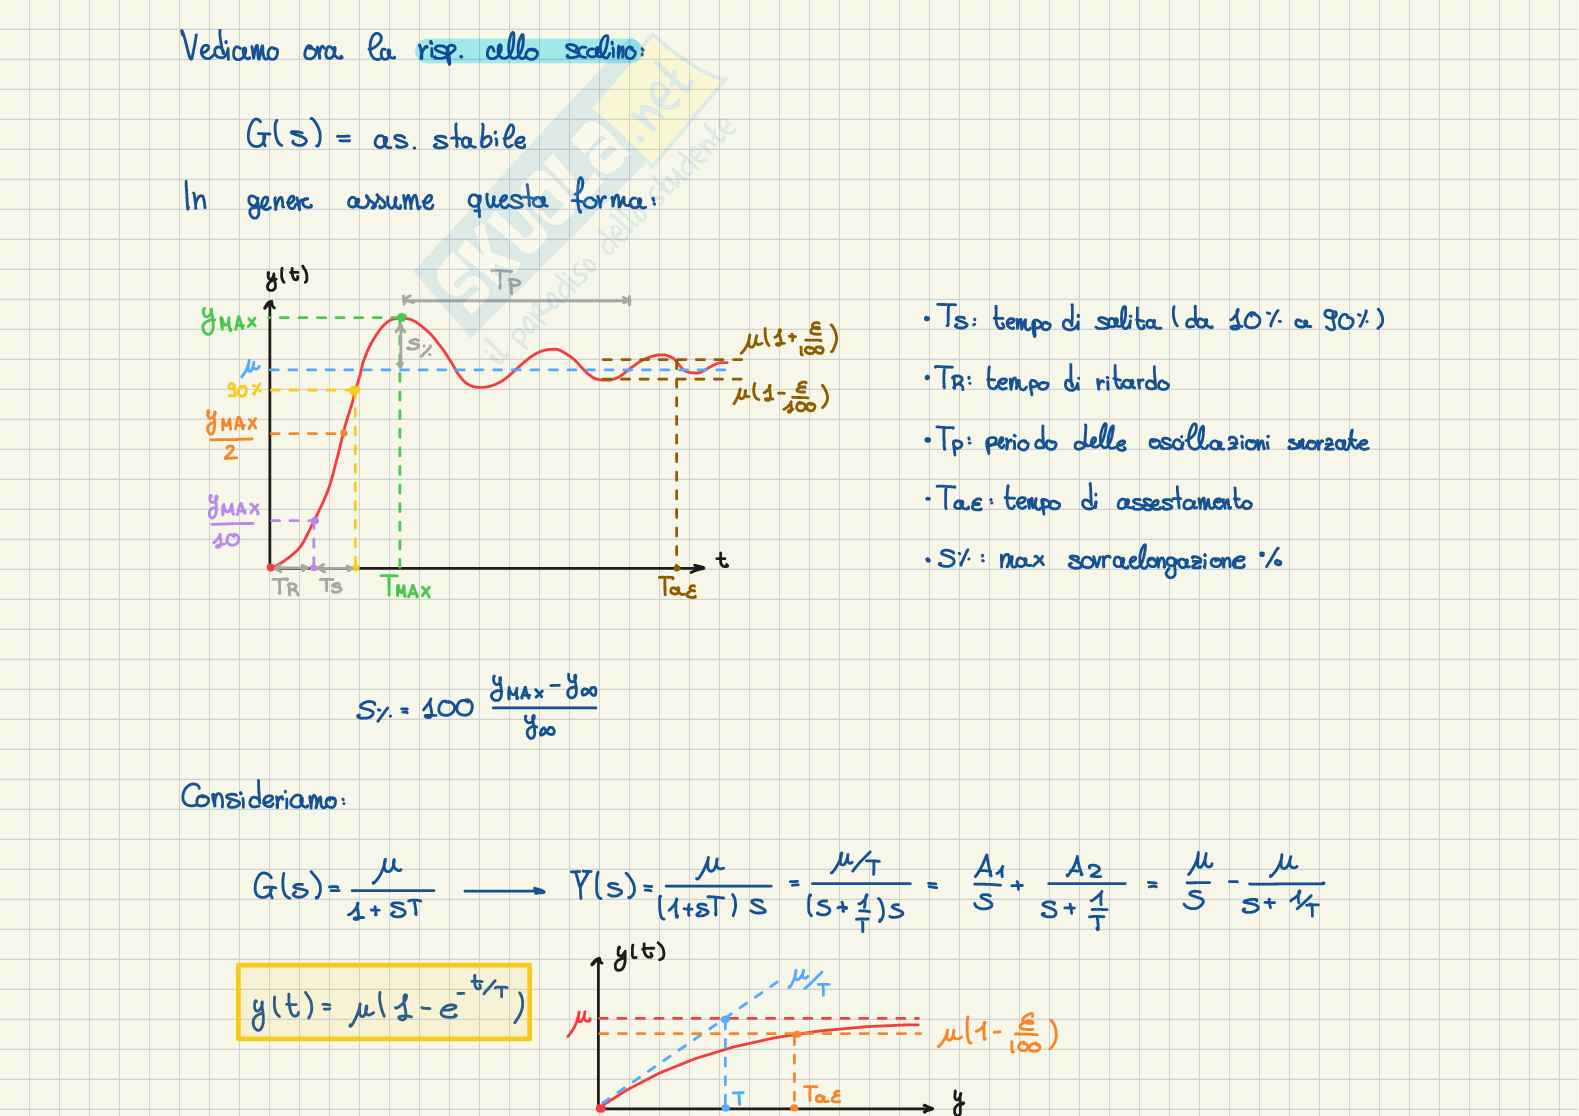 Vediamo ora la risp. allo scalino:
G(s) = as. stabile
In genere assume questa forma:
SKUOLA.net
il paradiso dello studente
y(t)
Tp
yMAX
S%
μ
90%
yMAX/2
yMAX/10
TR
Ts
TMAX
Taε
t
μ(1+ε/100)
μ(1-ε/100)
• Ts: tempo di salita (da 10% a 90%)
• TR: tempo di ritardo
• Tp: periodo delle oscillazioni smorzate
• Taε: tempo di assestamento
• S%: max sovraelongazione %
S% = 100 (yMAX - y∞)/y∞
Consideriamo:
G(s) = μ/(1+sT) → Y(s) = μ/((1+sT) s) = (μ/T)/((s+1/T)s) = A1/s + A2/(s+1/T) = μ/s - μ/(s+1/T)
y(t) = μ(1-e^(-t/T))
y(t)
μ/T
μ
μ(1-ε/100)
T
Taε
y